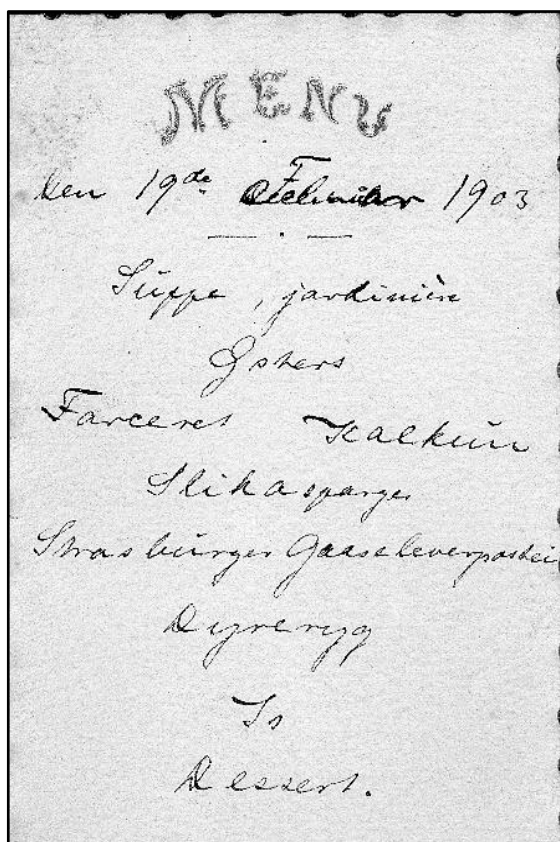 MENU
Den 19de Februar 1903
Suppe, jardinière
Østers
Farceret Kalkun
Slikasparges
Strasburger Gaaseleverpostei
Dyreryg
Is
Dessert.